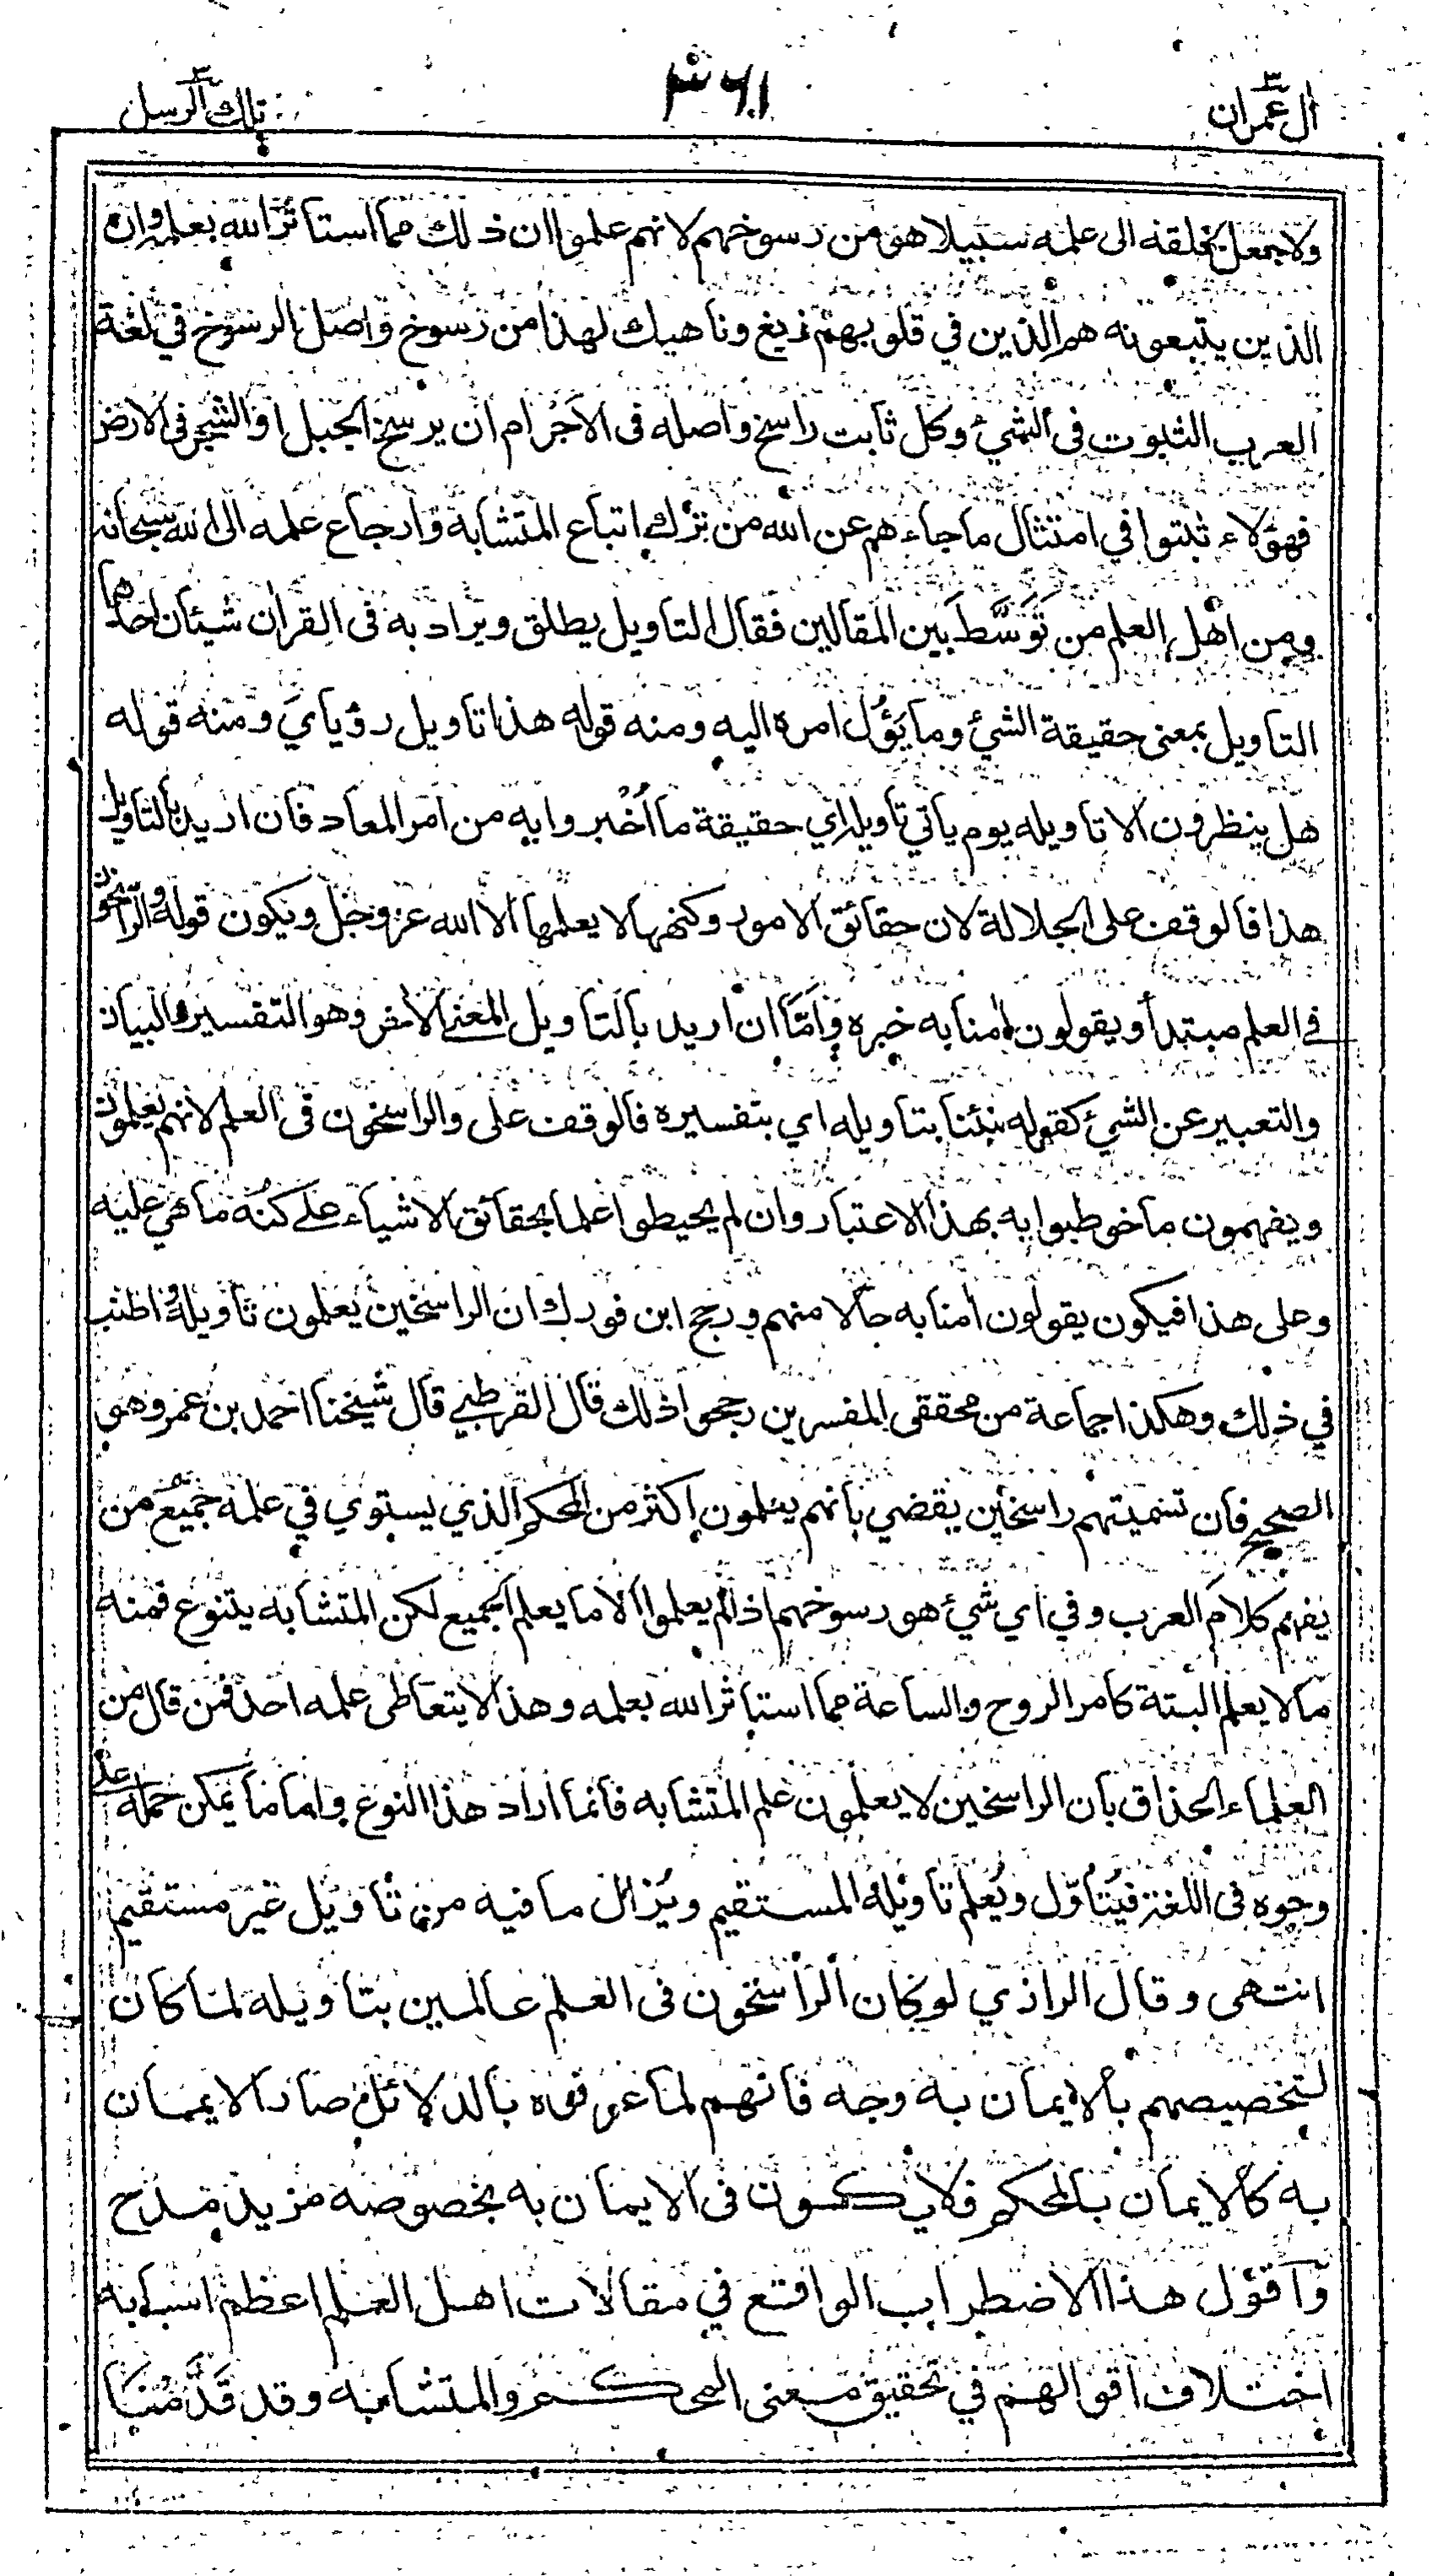 ال عمران ٣
تلك الرسل ٣
ولا جعل لخلقه الى علمه سبيلا هو من رسوخهم لانهم علموا ان ذلك مما استاثر الله بعلمه وان
الذين يتبعونه هم الذين في قلوبهم زيغ وناهيك لهذا من رسوخ واصل الرسوخ في لغة
العرب الثبوت فى الشيئ وكل ثابت راسخ واصله فى الاجرام ان يرسخ الجبل او الشجر فى الارض
فهؤلاء ثبتوا في امتثال ما جاءهم عن الله من ترك اتباع المتشابه وارجاع علمه الى الله سبحانه
ومن اهل العلم من تَوَسَّطَ بين المقالين فقال التاويل يطلق ويراد به فى القران شيئان احدهما
التاويل بمعنى حقيقة الشيئ وما يَؤُل امره اليه ومنه قوله هذا تاويل رؤياي ومنه قوله
هل ينظرون الا تاويله يوم ياتي تاويله اي حقيقة ما اُخبروا به من امر المعاد فان اريد بالتاويل
هذا فالوقف على الجلالة لان حقائق الامور وكنهها لا يعلمها الا الله عز وجل ويكون قوله والراسخون
في العلم مبتدأ ويقولون امنا به خبره واَمّا ان اريد بالتاويل المعنى الاخر وهو التفسير والبيان
والتعبير عن الشيئ كقوله نبئنا بتاويله اي بتفسيره فالوقف على والراسخون فى العلم لانهم يعلمون
ويفهمون ما خوطبوا به بهذا الاعتبار وان لم يحيطوا علما بحقائق الاشياء على كنه ما هي عليه
وعلى هذا فيكون يقولون امنا به حالا منهم ورجح ابن فورك ان الراسخين يعلمون تاويله واطنب
في ذلك وهكذا جماعة من محققى المفسرين رجحوا ذلك قال القرطبي قال شيخنا احمد بن عمر وهو
الصحيح فان تسميتهم راسخين يقضي بانهم يعلمون اكثر من المحكم الذي يستوي في علمه جميع من
يفهم كلام العرب وفي اي شيئ هو رسوخهم اذا لم يعلموا الا ما يعلم الجميع لكن المتشابه يتنوع فمنه
ما لا يعلم البتة كامر الروح والساعة مما استاثر الله بعلمه وهذا لا يتعاطى علمه احد فمن قال من
العلماء الحذاق بان الراسخين لا يعلمون علم المتشابه فانما اراد هذا النوع واما ما يمكن حمله على
وجوه فى اللغة فيُتاَوّل ويُعلم تاويله المستقيم ويُزال ما فيه من تاويل غير مستقيم
انتهى وقال الرازي لو كان الراسخون فى العلم عالمين بتاويله لما كان
لتخصيصهم بالايمان به وجه فانهم لما عرفوه بالدلائل صار الايمان
به كالايمان بالمحكم فلا يكون فى الايمان به بخصوصه مزيد مدح
واقول هذا الاضطراب الواقع في مقالات اهل العلم اعظم اسبابه
اختلاف اقوالهم في تحقيق معنى المحكم والمتشابه وقد قَدَّمْنَا